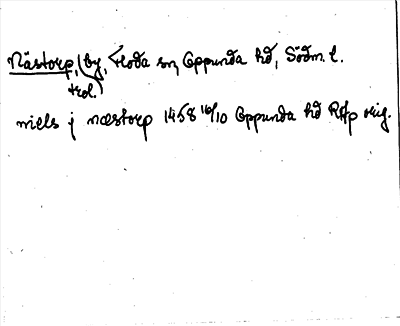 Nästorp, by, Floda sn, Oppunda hd, Södm. l.
trol.
niels j næstorp 1458 16/10 Oppunda hd RAp orig.